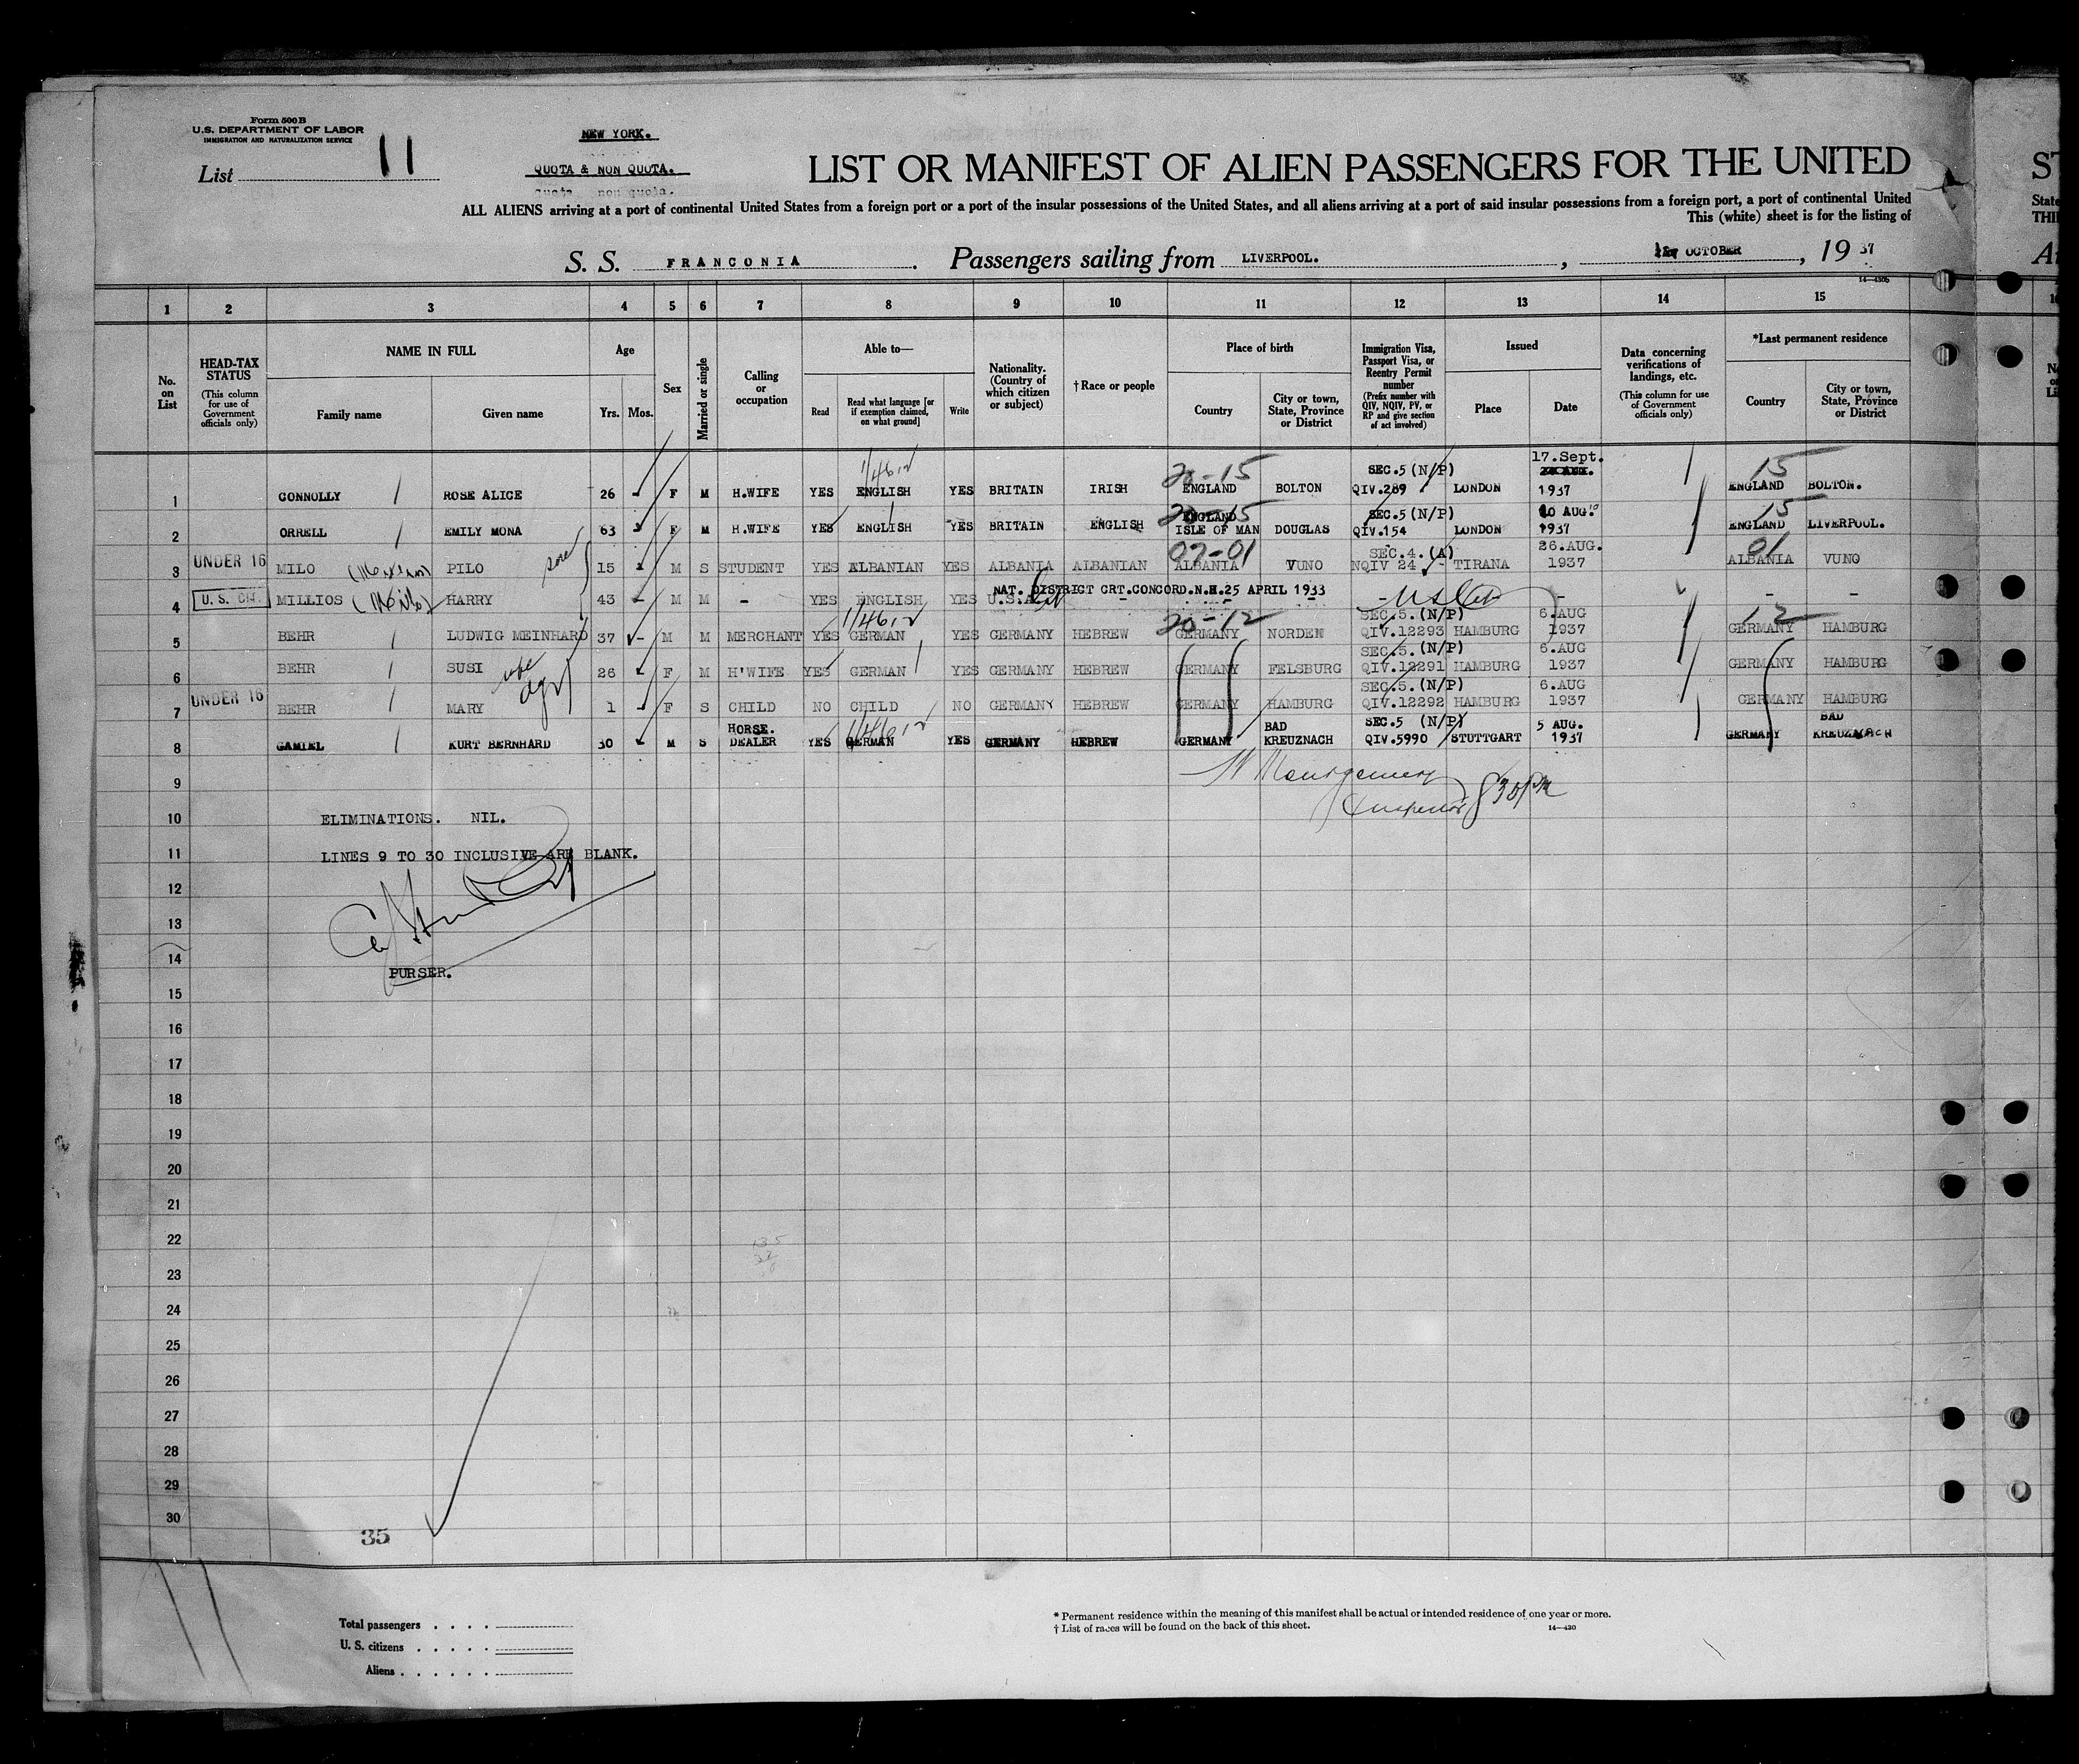 Form 500 B
U.S. DEPARTMENT OF LABOR
IMMIGRATION AND NATURALIZATION SERVICE
List 11
NEW YORK.
QUOTA & NON QUOTA.
quota non quota.
LIST OR MANIFEST OF ALIEN PASSENGERS FOR THE UNITED
ST
ALL ALIENS arriving at a port of continental United States from a foreign port or a port of the insular possessions of the United States, and all aliens arriving at a port of said insular possessions from a foreign port, a port of continental United
State
This (white) sheet is for the listing of
THI
S. S. FRANCONIA. Passengers sailing from LIVERPOOL. , OCTOBER , 19 37
14—430b
1 2 3 4 5 6 7 8 9 10 11 12 13 14 15
No. on List
HEAD-TAX STATUS (This column for use of Government officials only)
NAME IN FULL
Family name
Given name
Age
Yrs. Mos.
Sex
Married or single
Calling or occupation
Able to—
Read
Read what language [or if exemption claimed, on what ground]
Write
Nationality. (Country of which citizen or subject)
† Race or people
Place of birth
Country
City or town, State, Province or District
Immigration Visa, Passport Visa, or Reentry Permit number (Prefix number with QIV, NQIV, PV, or RP and give section of act involved)
Issued
Place
Date
Data concerning verifications of landings, etc. (This column for use of Government officials only)
*Last permanent residence
Country
City or town, State, Province or District
20-15 SEC.5 (N/P) 17.Sept. 15
1 CONNOLLY ROSE ALICE 26 - F M H.WIFE YES ENGLISH YES BRITAIN IRISH ENGLAND BOLTON QIV.289 LONDON 1937 ENGLAND BOLTON.
ENGLAND SEC.5 (N/P) 10 AUG. 15
2 ORRELL EMILY MONA 63 - F M H.WIFE YES ENGLISH YES BRITAIN ENGLISH ISLE OF MAN DOUGLAS QIV.154 LONDON 1937 ENGLAND LIVERPOOL.
UNDER 16 07-01 SEC.4.(A) 26.AUG. 01
3 MILO PILO 15 - M S STUDENT YES ALBANIAN YES ALBANIA ALBANIAN ALBANIA VUNO NQIV 24 - TIRANA 1937 ALBANIA VUNO
U. S. CIT. NAT. DISTRICT CRT.CONCORD.N.H.25 APRIL 1933
4 MILLIOS (Millo) HARRY 43 - M M - YES ENGLISH YES U.S.A. - - - - - - -
20-12 SEC.5.(N/P) 6.AUG 12
5 BEHR LUDWIG MEINHARD 37 - M M MERCHANT YES GERMAN YES GERMANY HEBREW GERMANY NORDEN QIV.12293 HAMBURG 1937 GERMANY HAMBURG
wife SEC.5.(N/P) 6.AUG
6 BEHR SUSI 26 - F M H'WIFE YES GERMAN YES GERMANY HEBREW GERMANY FELSBURG QIV.12291 HAMBURG 1937 GERMANY HAMBURG
UNDER 16 SEC.5.(N/P) 6.AUG
7 BEHR MARY 1 - F S CHILD NO CHILD NO GERMANY HEBREW GERMANY HAMBURG QIV.12292 HAMBURG 1937 GERMANY HAMBURG
HORSE. BAD SEC.5 (N/P) 5 AUG. BAD
8 GAMIEL KURT BERNHARD 30 - M S DEALER YES GERMAN YES GERMANY HEBREW GERMANY KREUZNACH QIV.5990 STUTTGART 1937 GERMANY KREUZNACH
9 Montgomery
Inspector 830 PM
10 ELIMINATIONS. NIL.
11 LINES 9 TO 30 INCLUSIVE ARE BLANK.
12
13
14 PURSER.
15
16
17
18
19
20
21
22
23
24
25
26
27
28
29
30
35
Total passengers
U. S. citizens
Aliens
* Permanent residence within the meaning of this manifest shall be actual or intended residence of one year or more.
† List of races will be found on the back of this sheet.
14—430